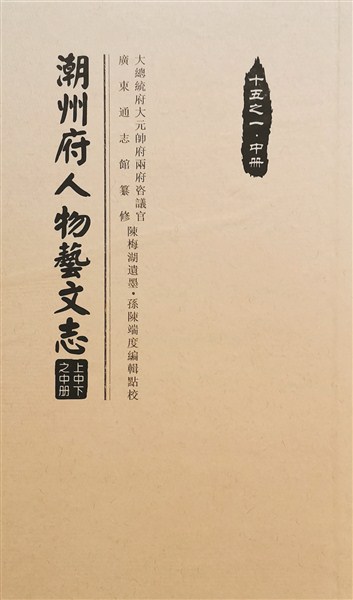 十五之一·中册
大總統府大元帥府兩府咨議官
廣東通志館纂修
陳梅湖遺墨·孫陳端度編輯點校
潮州府人物藝文志
上中下
之中册